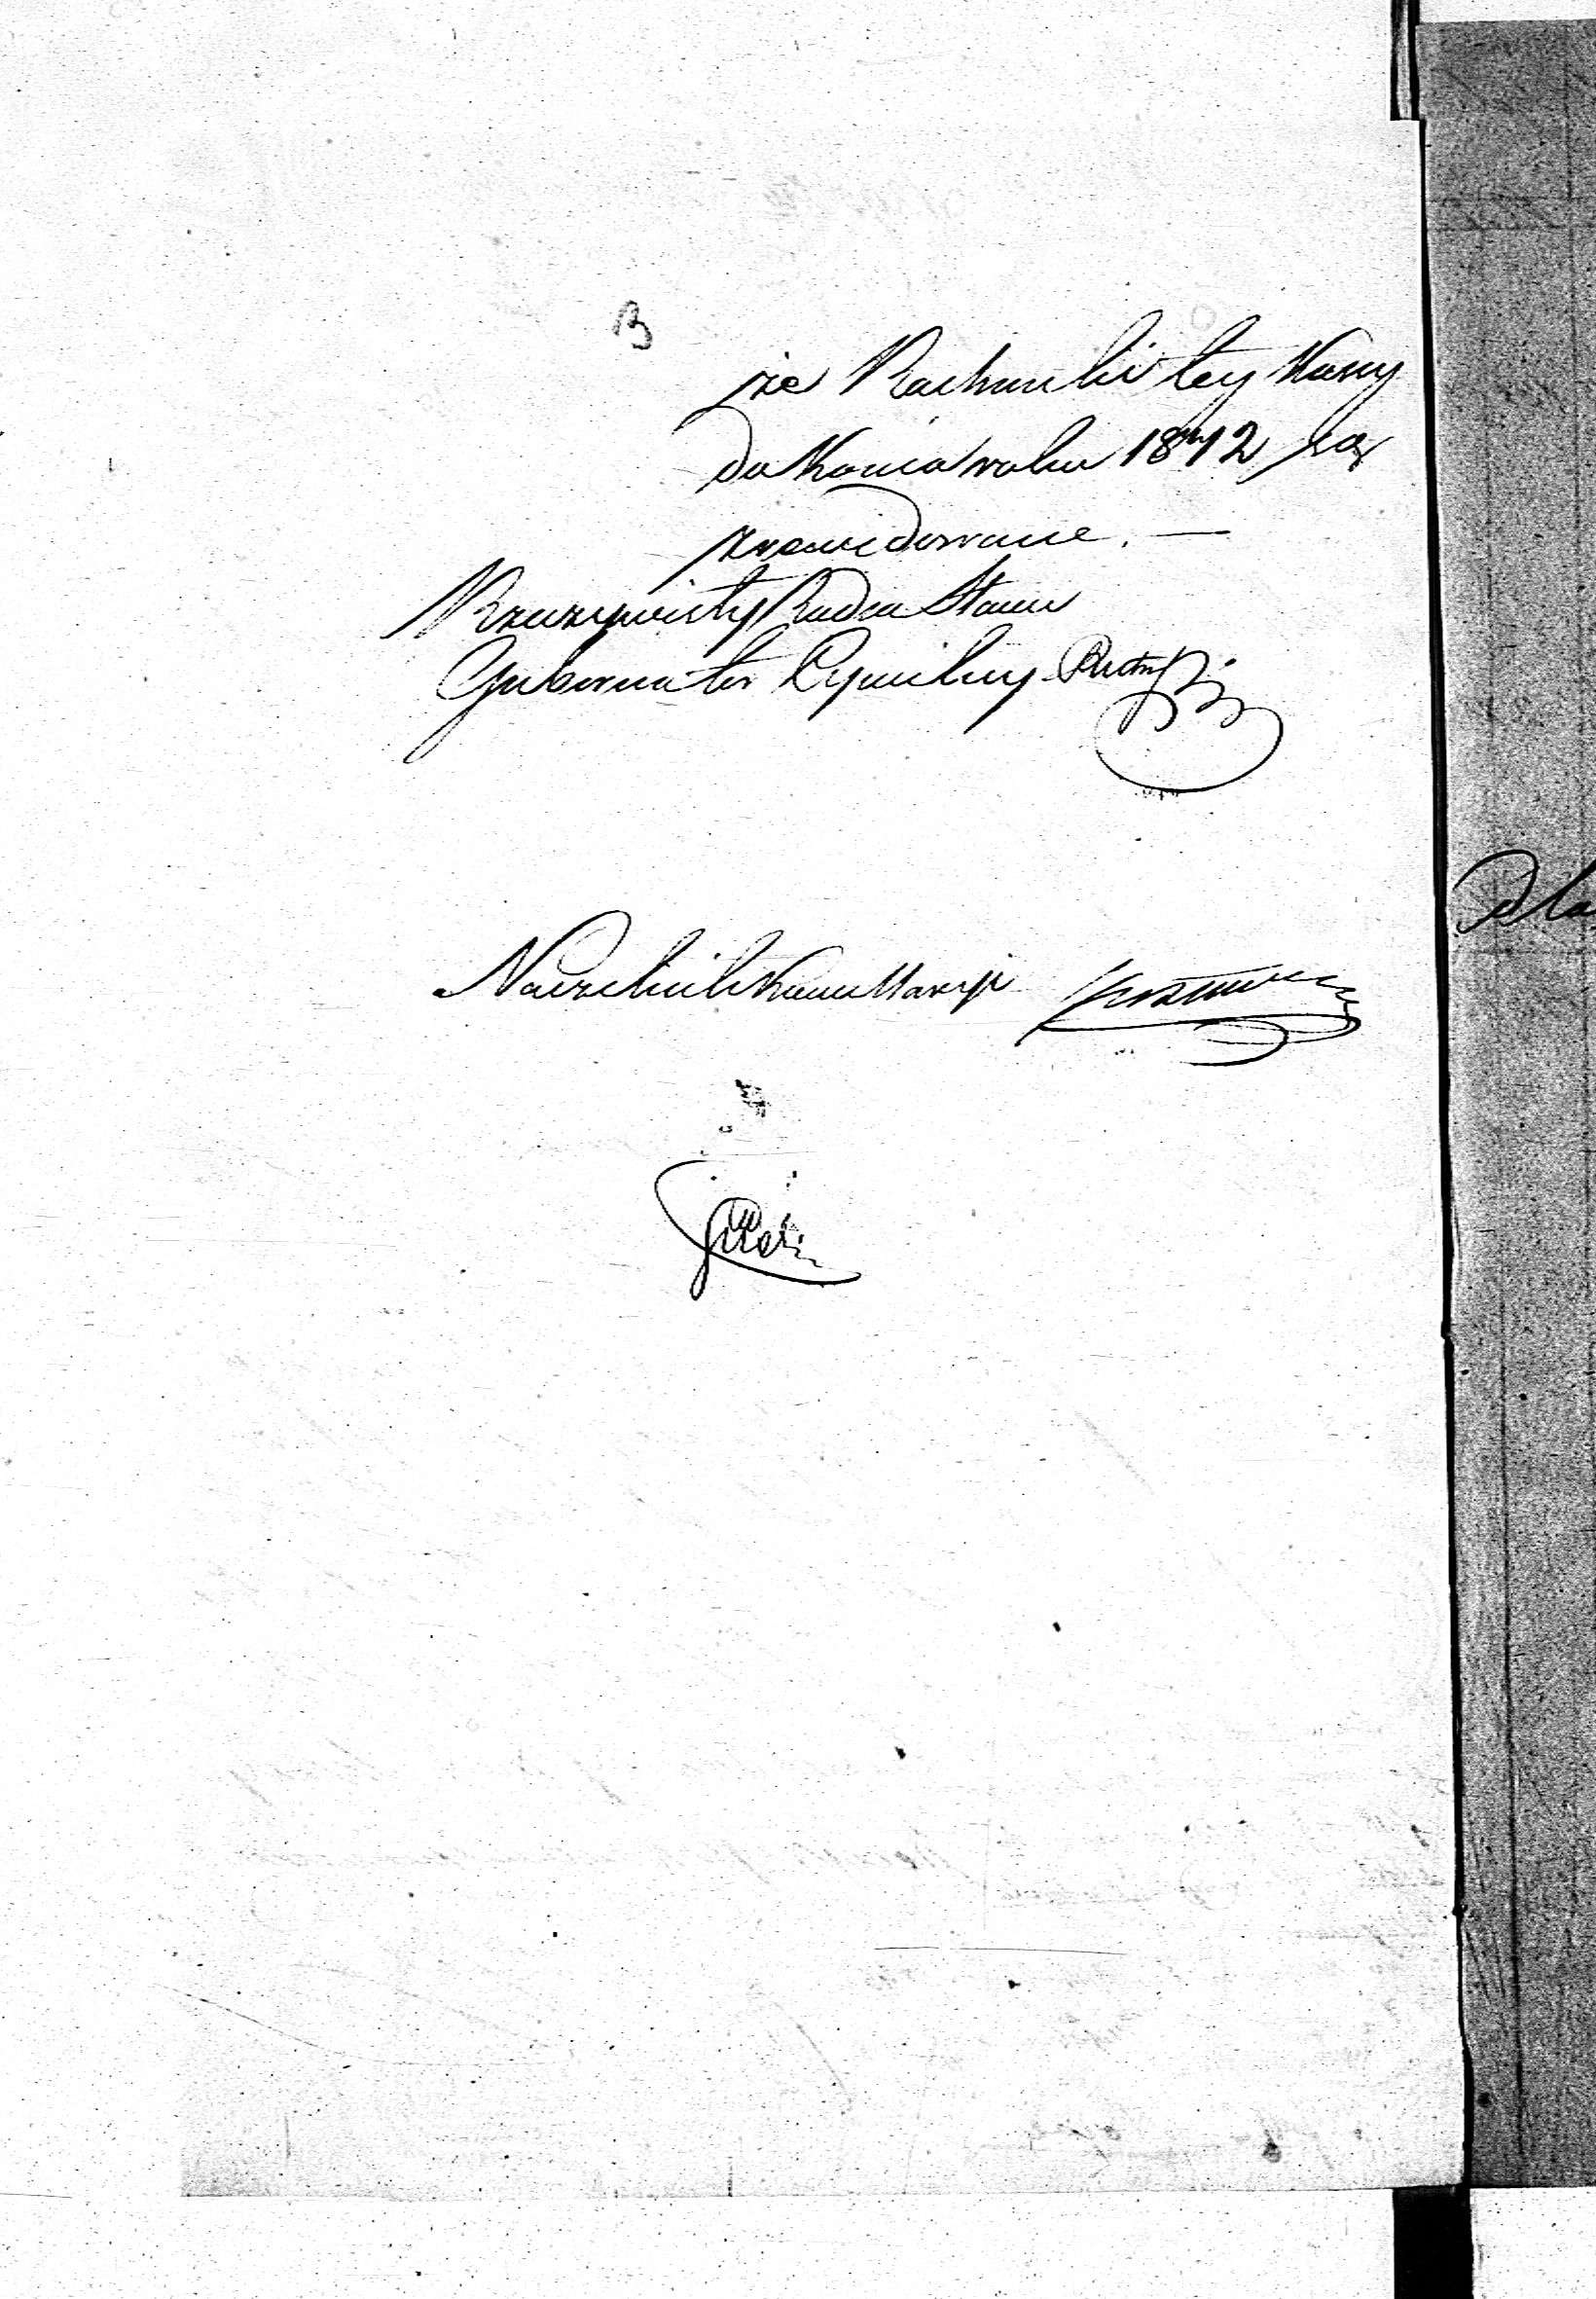 że Rachunki tey Kassy
do Końca roku 1842 są
zrewidowane. —
Rzeczywisty Radca Stanu
Gubernator Cywilny
Naczelnik Kancellaryi
dla